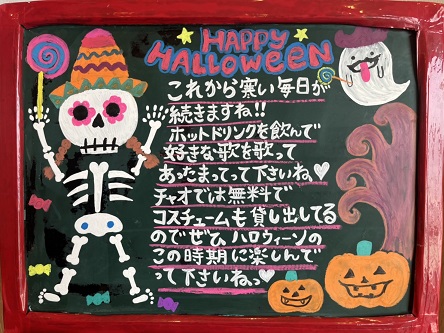 HAPPY
HALLOWEEN
これから寒い毎日が
続きますね!!
ホットドリンクを飲んで
好きな歌を歌って
あったまってって下さいね♡
チャオでは無料で
コスチュームも貸し出してる
のでぜひハロウィーンの
この時期に楽しんで
て下さいねっ